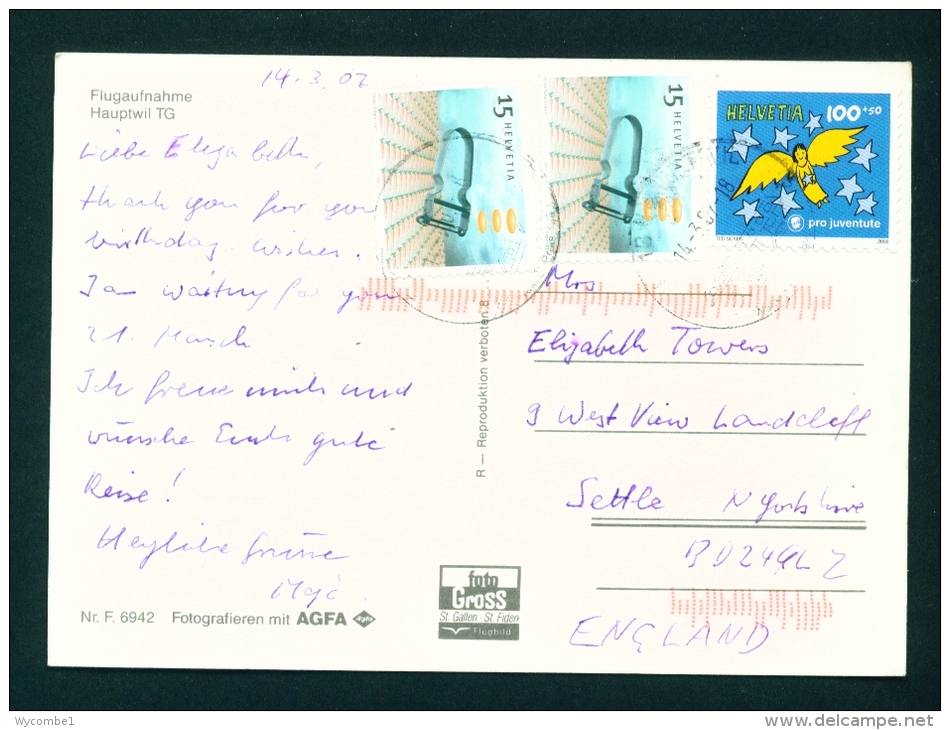 14.3.02
Flugaufnahme
Hauptwil TG
Liebe Elizabeth,
thank you for your
birthday wishes.
I am waiting for you
21. March
Ich freue mich und
wünsche Euch gute
Reise!
Herzliche Grüsse
Maja.
Nr. F. 6942 Fotografieren mit AGFA Agfa
R — Reproduktion verboten 8
foto
Gross
St. Gallen - St. Fiden
Flugbild
15 HELVETIA
15 HELVETIA
HELVETIA 100+50
pro juventute
14.-3.02-18
Mrs
Elizabeth Towers
9 West View Landcliff
Settle N Yorkshire
ENGLAND
Wycombe1
www.delcampe.net